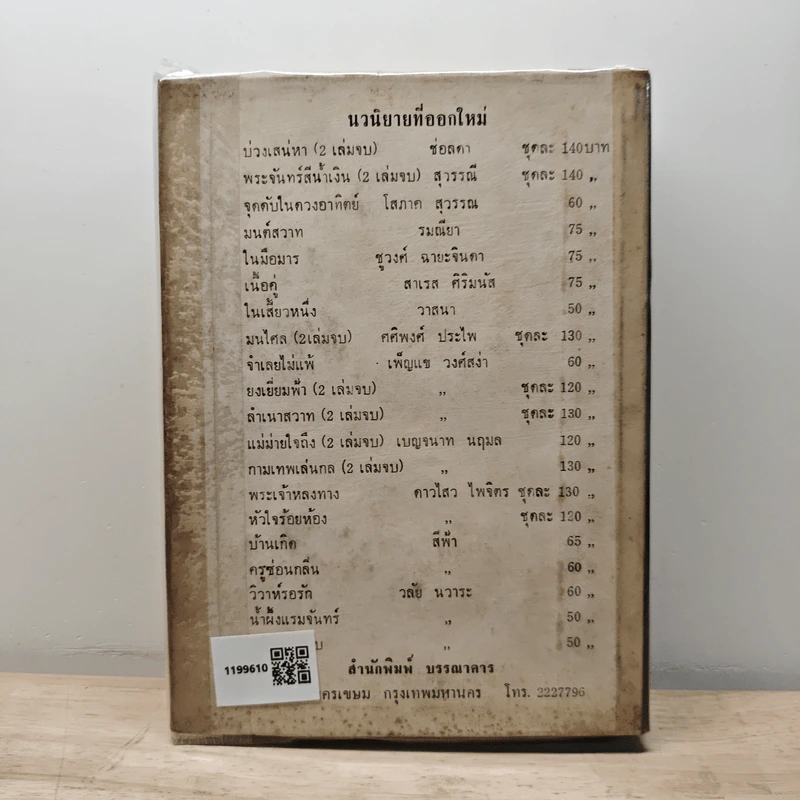 นวนิยายที่ออกใหม่
บ่วงเสน่หา (2 เล่มจบ) ช่อลดา ชุดละ 140บาท
พระจันทร์สีน้ำเงิน (2 เล่มจบ) สุวรรณี ชุดละ 140 ,,
จุดดับในดวงอาทิตย์ โสภาค สุวรรณ 60 ,,
มนต์สวาท รมณียา 75 ,,
ในมือมาร ชูวงศ์ ฉายะจินดา 75 ,,
เนื้อคู่ สาเรส ศิริมนัส 75 ,,
ในเสี้ยวหนึ่ง วาสนา 50 ,,
มนไศล (2เล่มจบ) ศศิพงศ์ ประไพ ชุดละ 130 ,,
จำเลยไม่แพ้ เพ็ญแข วงศ์สง่า 60 ,,
ยงเยี่ยมฟ้า (2 เล่มจบ) ,, ชุดละ 120 ,,
ลำเนาสวาท (2 เล่มจบ) ,, ชุดละ 130 ,,
แม่ม่ายใจถึง (2 เล่มจบ) เบญจนาท นฤมล 120 ,,
กามเทพเล่นกล (2 เล่มจบ) ,, 130 ,,
พระเจ้าหลงทาง ดาวไสว ไพจิตร ชุดละ 130 ,,
หัวใจร้อยห้อง ,, ชุดละ 120 ,,
บ้านเกิด สีฟ้า 65 ,,
ครูซ่อนกลิ่น ,, 60 ,,
วิวาห์รอรัก วลัย นวาระ 60 ,,
น้ำผึ้งแรมจันทร์ ,, 50 ,,
,, 50 ,,
1199610
สำนักพิมพ์ บรรณาคาร
ครเขษม กรุงเทพมหานคร โทร. 2227796